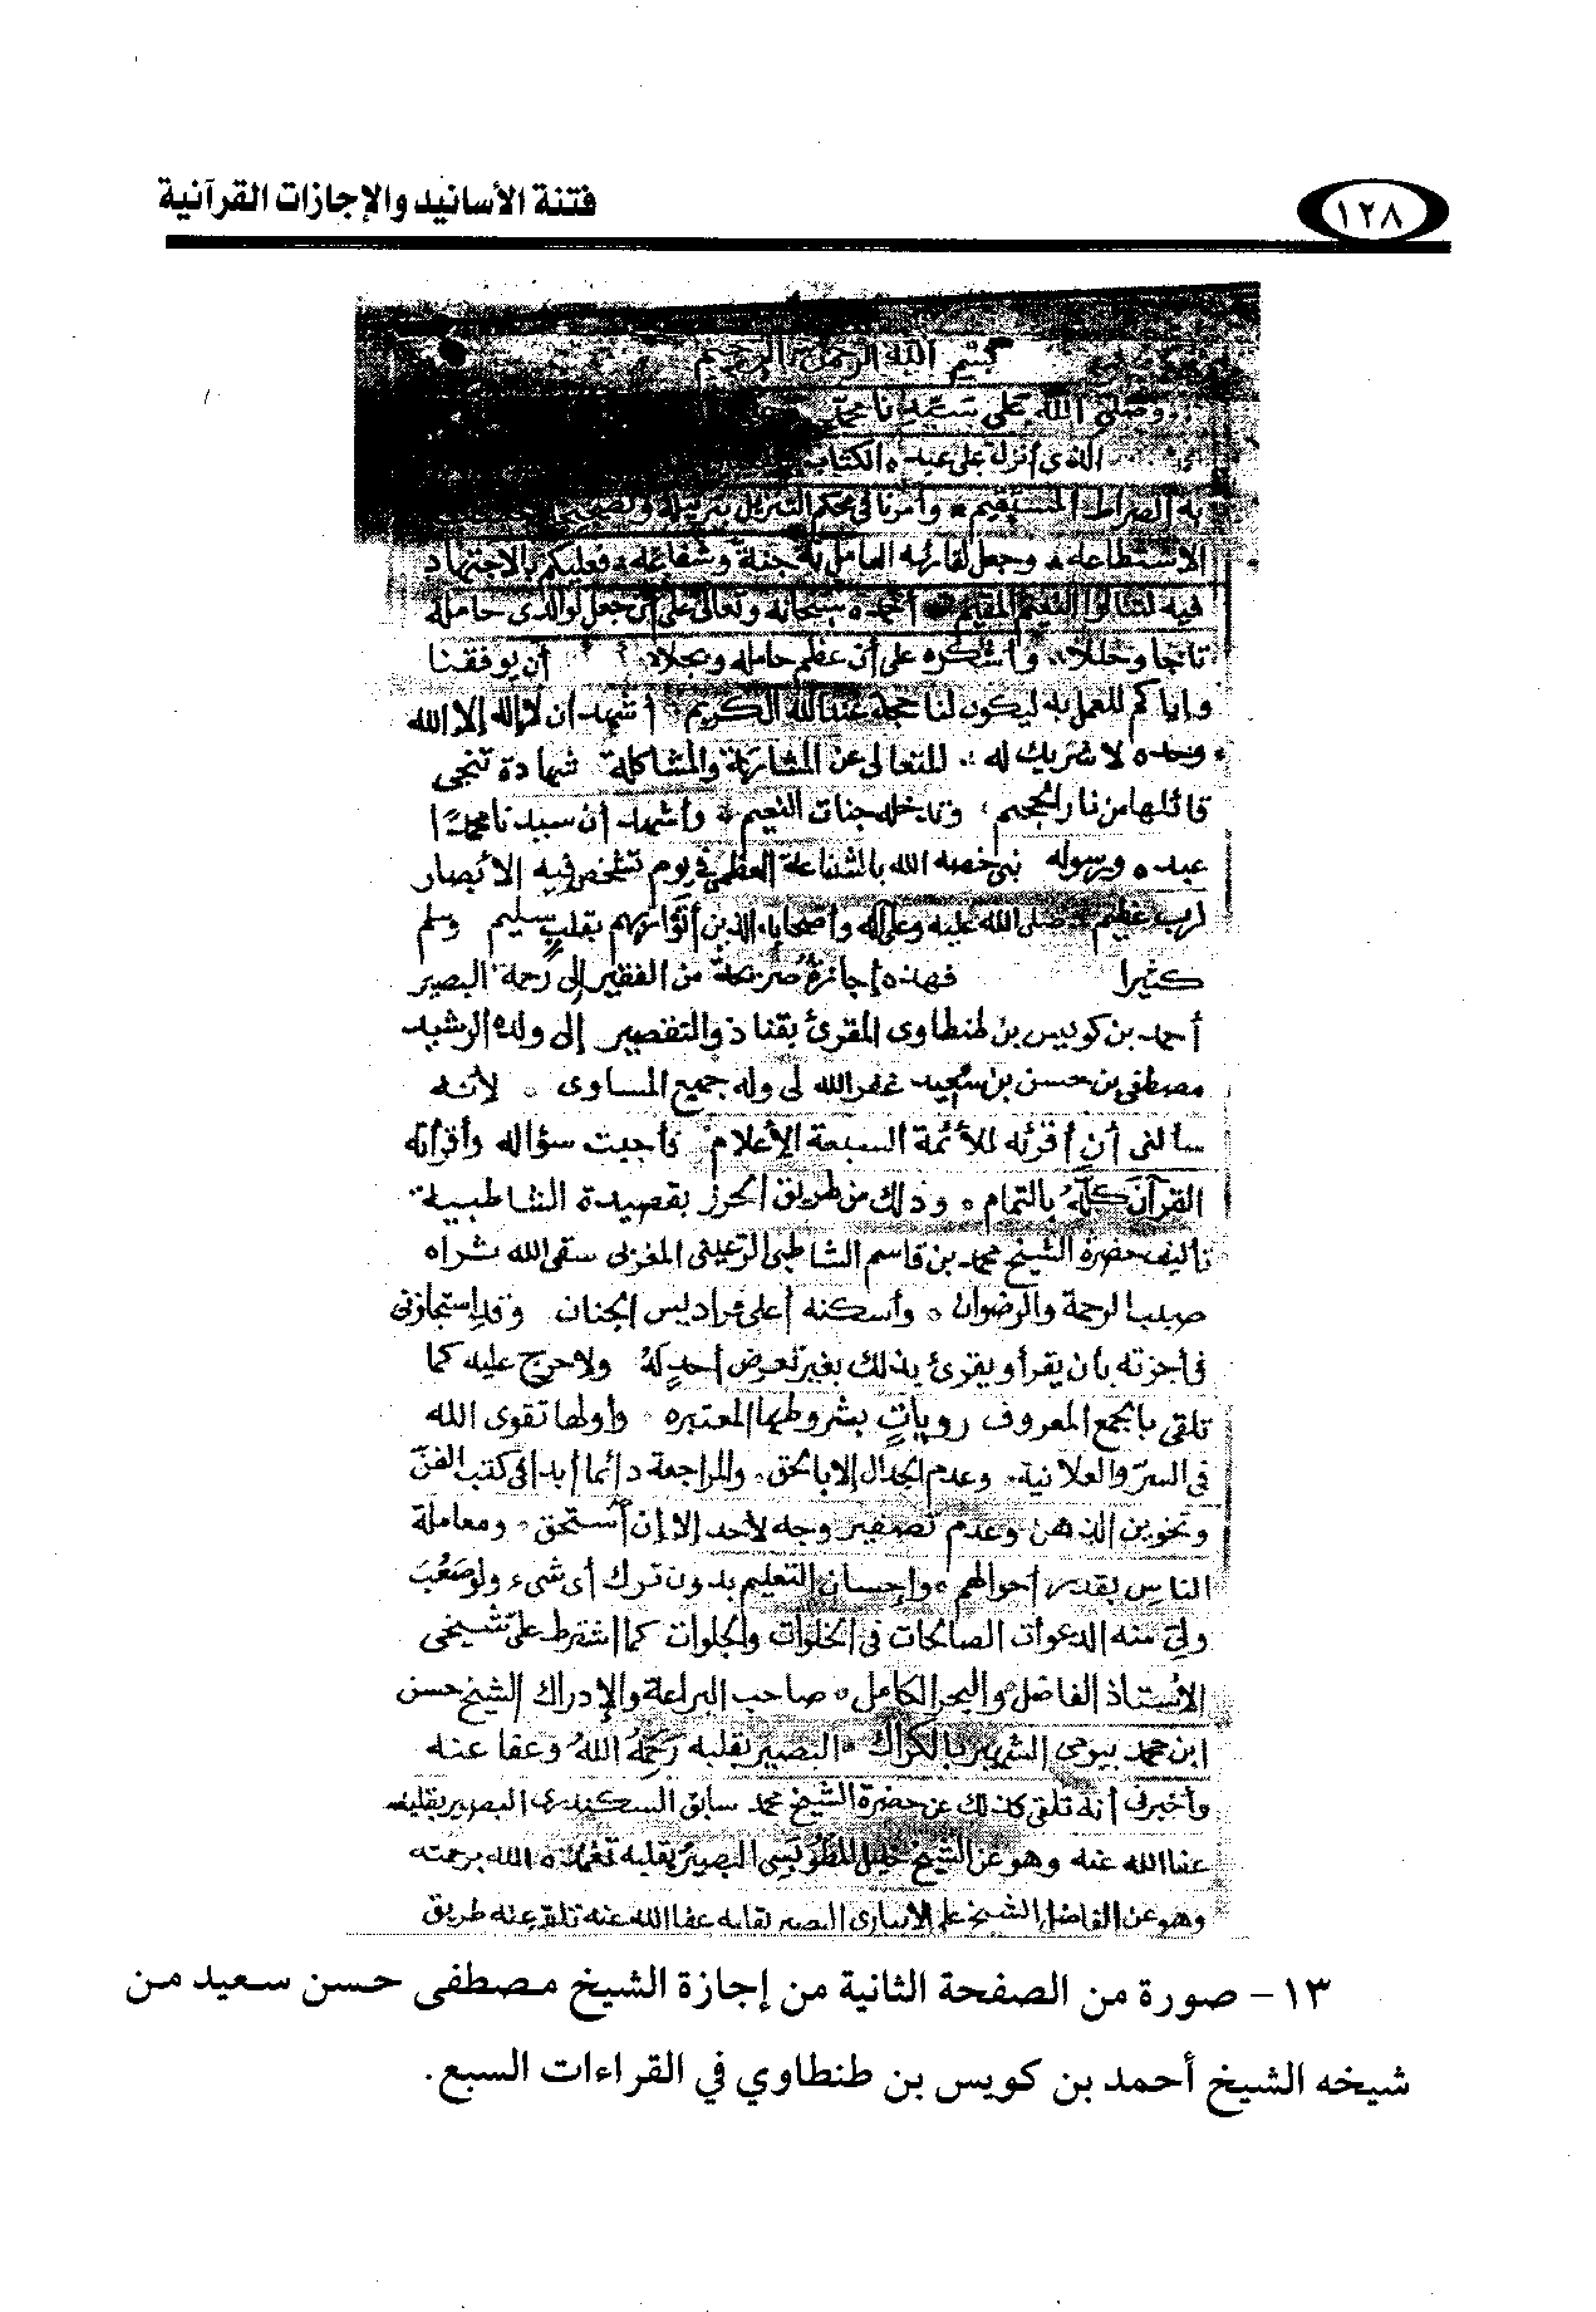 ١٢٨
فتنة الأسانيد والإجازات القرآنية
بسم الله الرحمن الرحيم
وصلى الله على سيدنا محمد
الذى أنزل على عبده الكتاب
به الصراط المستقيم * وأمرنا فى محكم التنزيل بترتيله
الاستطاعه * وجعل لقارئه العامل به جنة وشفاعة * فعليكم بالاجتهاد
فيه لتنالوا النعيم المقيم * أحمده سبحانه وتعالى على أن جعل لوالدى حامله
تاجا وحللا وأشكره على أن عظم حامله أن يوفقنا
وإياكم للعمل به ليكون لنا حجة عند الله الكريم أشهد أن لا إله إلا الله
وحده لا شريك له المتعالى عن المشاركة والمشاكلة شهادة تنجى
قائلها من نار الجحيم وتدخله جنات النعيم * وأشهد أن سيدنا محمدًا
عبده ورسوله نبى خصه الله بالشفاعة العظمى فى يوم تشخص فيه الأبصار
لرب عظيم * صلى الله عليه وعلى آله وأصحابه الذين أتوا ربهم بقلبٍ سليم وسلم
كثيرا فهذه إجازةٌ من الفقير إلى رحمة البصير
أحمد بن كويس بن طنطاوى المقرئ بقنا ذو التقصير إلى ولده الرشيد
مصطفى بن حسن بن سعيد غفر الله لى وله جميع المساوى . لأنه
سألنى أن أقرئه للأئمة السبعة الأعلام فأجبت سؤاله وأقرأته
القرآنَ كلَّهُ بالتمام . وذلك من طريق الحرز بقصيدة الشاطبية
تأليف حضرة الشيخ محمد بن قاسم الشاطبى الرعينى المغربى سقى الله ثراه
صيب الرحمة والرضوان . وأسكنه أعلى فراديس الجنان وقد استجازنى
فأجزته بأن يقرأ ويقرئ بذلك بغير تعرض أحدٍ لهُ ولا حرج عليه كما
تلقى بالجمع المعروف روياتٍ بشروطها المعتبره . وأولها تقوى الله
فى السرّ والعلانية . وعدم الجدال إلا بالحق . والمراجعة دائما أبدا فى كتب الفنّ
الذهن وعدم تصغير وجه لأحد إلا إن استحق . ومعاملة
الناس بقدر أحوالهم . وإحسان التعليم بدون ترك أى شىء ولو صَعُبَ
ولى منه الدعوات الصالحات فى الخلوات والجلوات كما اشترط علىّ شيخى
الأستاذ الفاضل والبحر الكامل . صاحب البراعة والإدراك الشيخ حسن
ابن محمد بيومى الشهير بالكراك . البصير بقلبه رَحِمَهُ اللهُ وعفا عنه
وأخبرنى أنه تلقى كذلك عن حضرة الشيخ محمد سابق السكندرى البصير بقلبه
عفا الله عنه وهو عن الشيخ خليل المطوبسى البصير بقلبه تغمده الله برحمته
وهو عن الفاضل الشيخ على الابيارى البصير بقلبه عفا الله عنه تلقى عنه طريق
١٣- صورة من الصفحة الثانية من إجازة الشيخ مصطفى حسن سعيد من
شيخه الشيخ أحمد بن كويس بن طنطاوي في القراءات السبع.